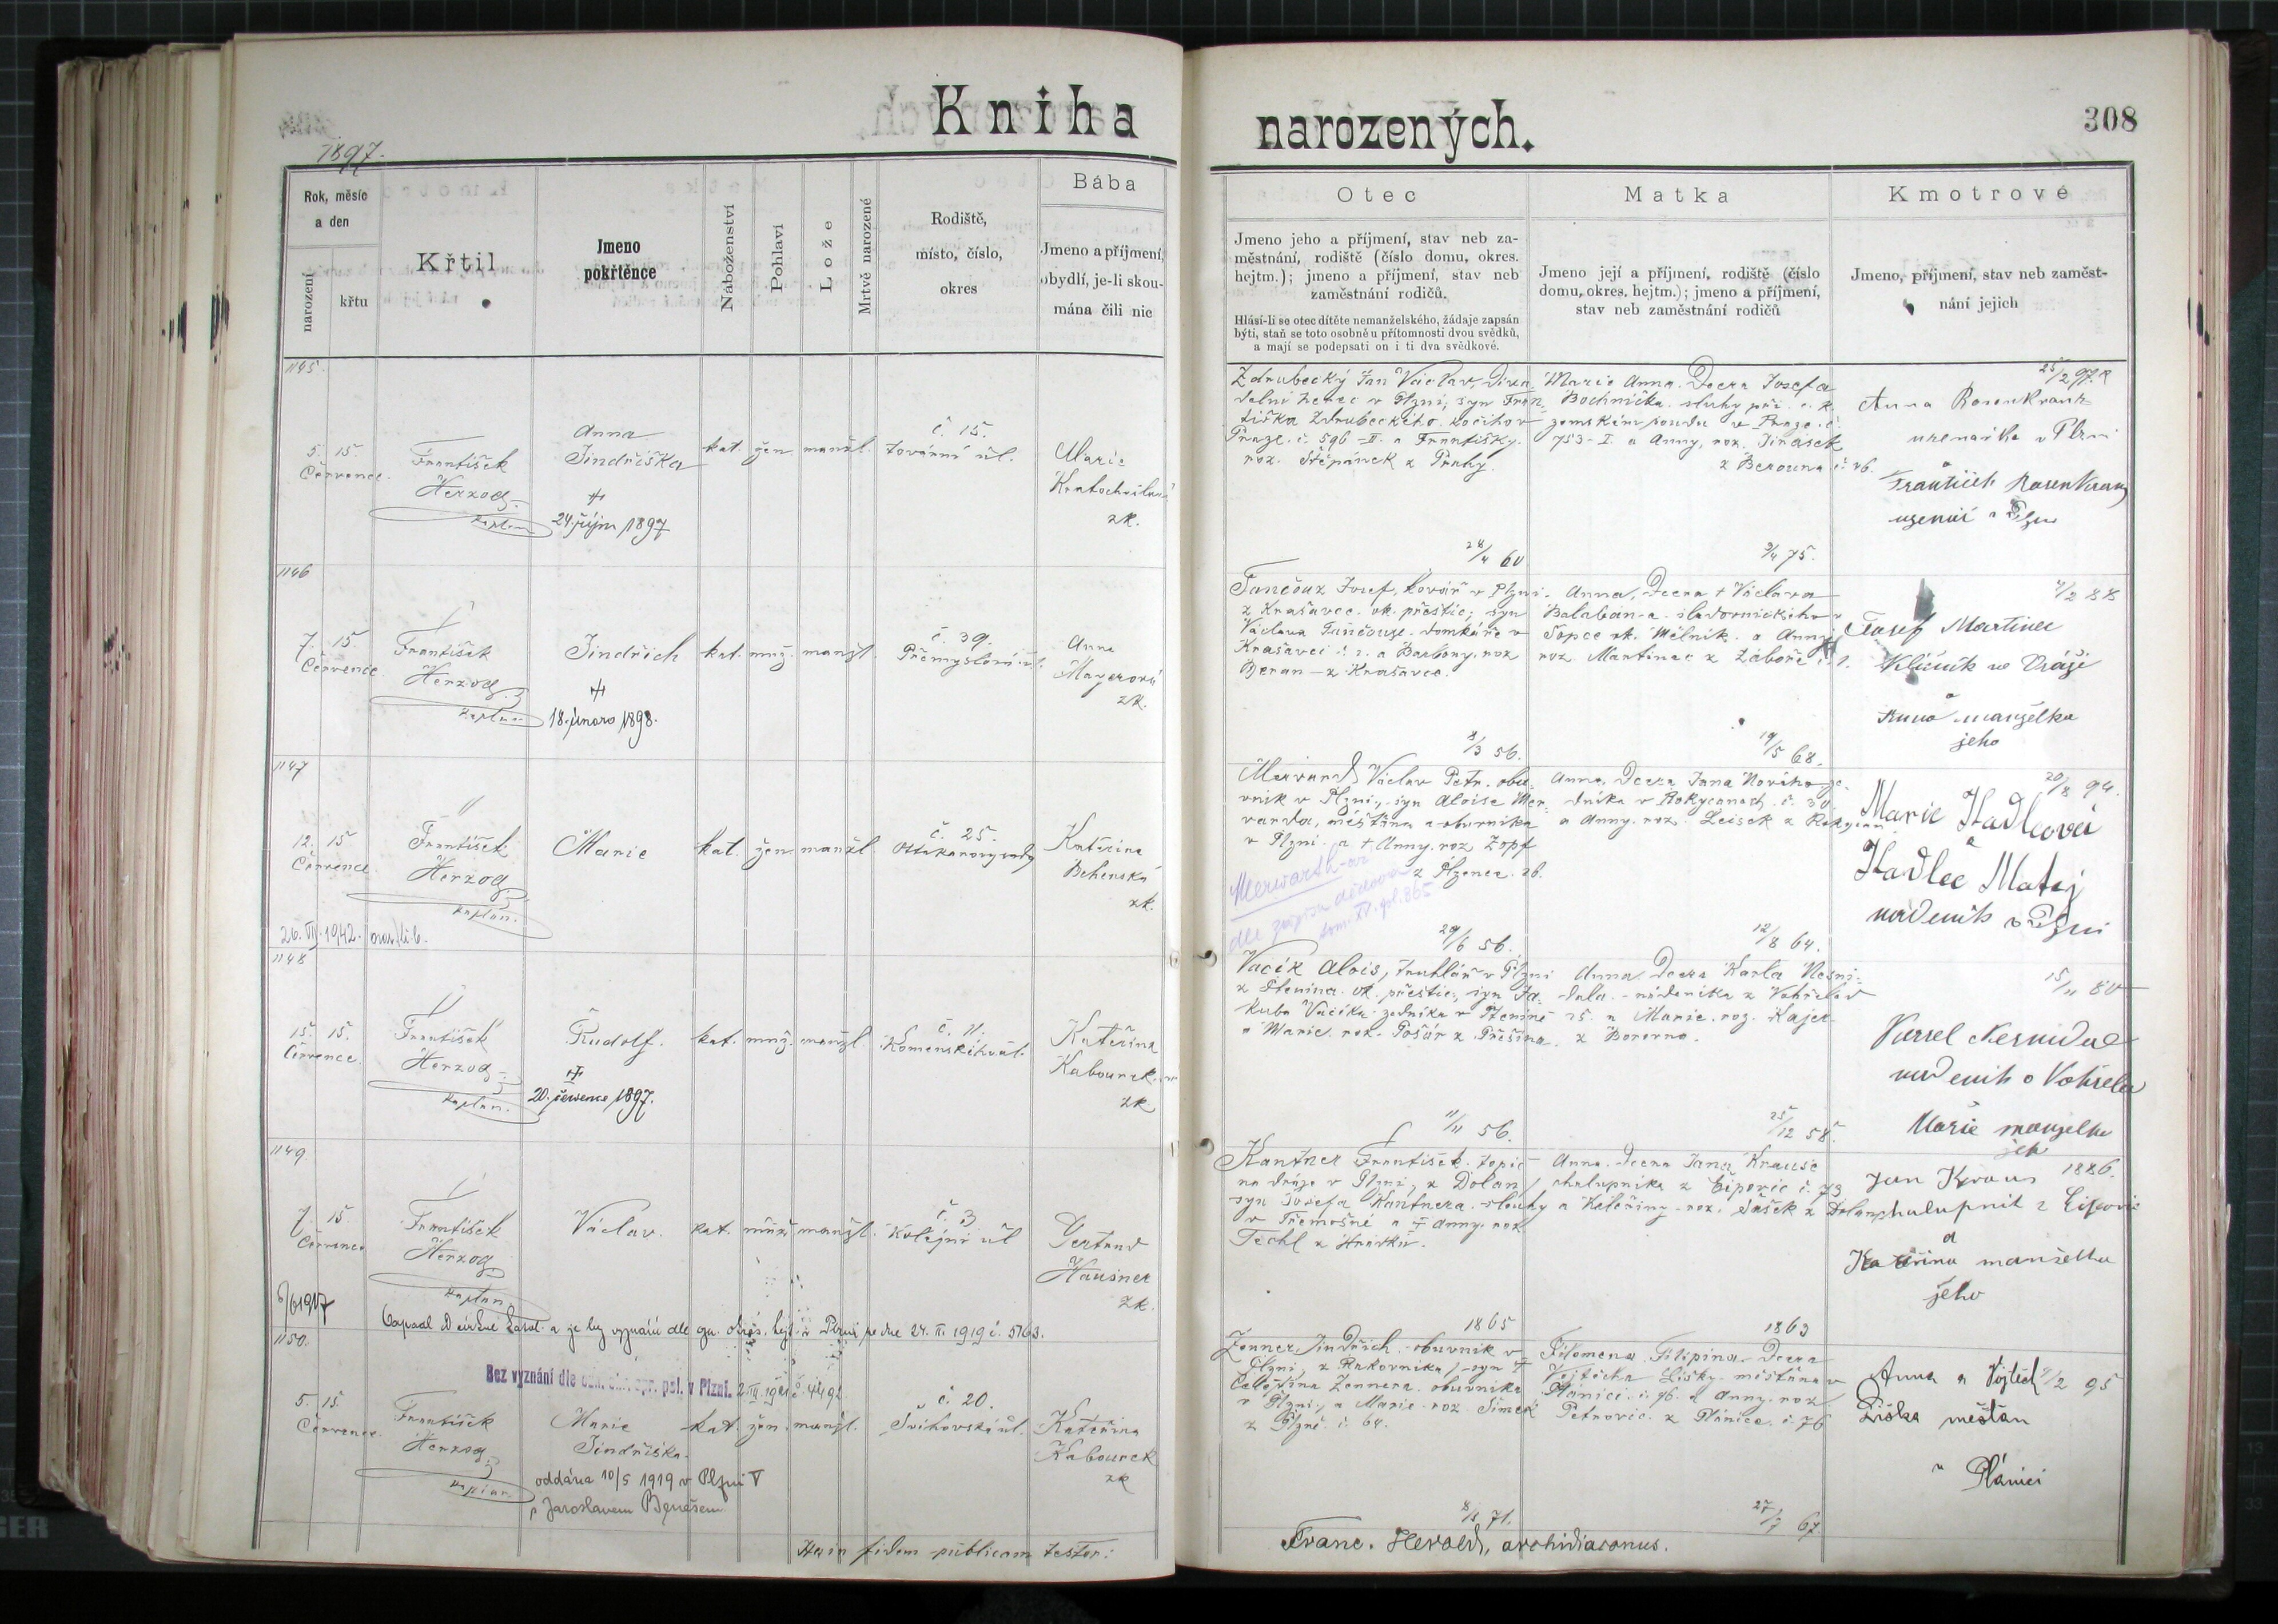 Kniha
narozených.
308
1897.
Rok, měsíc
a den
narození
křtu
Křtil
Jmeno
pokřtěnce
Náboženství
Pohlaví
Lože
Mrtvě narozené
Rodiště,
místo, číslo,
okres
Bába
Jmeno a příjmení,
obydlí, je-li skou-
mána čili nic
Otec
Jmeno jeho a příjmení, stav neb za-
městnání, rodiště (číslo domu, okres.
hejtm.); jmeno a příjmení, stav neb
zaměstnání rodičů.
Hlásí-li se otec dítěte nemanželského, žádaje zapsán
býti, staň se toto osobně u přítomnosti dvou svědků,
a mají se podepsati on i ti dva svědkové.
Matka
Jmeno její a příjmení, rodiště (číslo
domu, okres. hejtm.); jmeno a příjmení,
stav neb zaměstnání rodičů
Kmotrové
Jmeno, příjmení, stav neb zaměst-
nání jejich
1145.
5. 15.
Července.
František
Herzog
kaplan
Anna
Jindřiška
24. října 1897
kat. žen. manžl.
č. 15.
tovární ul.
Marie
zk.
Zdrubecký Jan Václav, diva-
delní herec v Plzni, syn Fran-
tiška Zdrubeckého
Praze č. 596-II. a Františky
roz. Štěpánek z Prahy.
Marie Anna. Dcera Josefa
Bochníčka. sluhy při c. k.
zemském soudu v Praze č.
753-I. a Anny, roz. Jirásek
z Berouna č. 26.
25/2 97.
Anna Rosenkranz
uzenářka v Plzni
a
František Rosenkranz
uzenář v Plzni
28/4 60
3/4 75.
1146
7. 15.
Července.
František
Herzog
kaplan
Jindřich
18. února 1898.
kat. muž. manžl.
č. 39.
Přemyslova ul.
Anna
Mayerová
zk.
Tunčour Josef, kovář v Plzni.
z Krašovec. ok. přeštic; syn
Václava Tunčoura. domkáře v
Krašovci č. 2. a Barbory. roz
Beran - z Krašovce.
Anna, Dcera + Václava
Balabána. sladovnického v
Šopce ok. Mělník. a Anny
roz. Martinec z Zaboře č. 1.
4/2 88
Josef Martinec
Klíčník ve Vráži
a
Anna manželka
jeho
8/3 56.
19/5 68.
1147
12. 15
Července.
František
Herzog
kaplan.
Marie
kat. žen. manžl
č. 25.
Ottokarovy sady
Kateřina
Behenská
zk.
Mervard Václav Petr. obu-
vník v Plzni, syn Aloise Mer-
varda, měšťana a obuvníka
v Plzni a + Anny. roz Zopf
z Plzence. 26.
Merwarth-ar
dle zápisu dědova
tom. XV. pol. 265
Anna, Dcera Jana Nového ze-
dníka v Rokycanech. č. 30.
a Anny. roz. Leisek z Rokycan
20/8 94.
Marie Hadlcová
a
Hadlec Matěj
nádeník v Plzni
26. VII. 1942.
29/6 56.
12/8 64.
1148
15. 15.
Července.
František
Herzog
kaplan.
Rudolf.
20. července 1897.
kat. muž. manžl.
č. 11.
Komenského ul.
Kateřina
Kabourek
zk
Vacík Alois, truhlář v Plzni
z Ptenína. ok. přeštic, syn Ja-
kuba Vacíka. zedníka v Pteníně
a Marie. roz. Pošár z Přešína.
Anna. Dcera Karla Nesni-
dala - nádeníka z Vohřeled
25. a Marie. roz. Hajer
z Borovna.
15/11 80
Karel Nesnídal
nádeník v Vohřeled
a
Marie manželka
jeh
11/11 56.
25/12 58.
1149
7. 15.
Července
František
Herzog
kaplan
Václav.
kat. muž. manžl.
č. 3
Kolejní ul
Gertrud
Hausner
zk.
Kantner František. topič
na dráze v Plzni, z Dolan,
syn Josefa Kantnera. slouhy
v Třemošné a + Anny. roz
Techl z Hrádku.
Anna. Dcera Jana Krause
chalupníka z Čiperic č. 73
a Kateřiny. roz. Sášek z Dolan
1886.
Jan Kraus
chalupník z
a
Kateřina manželka
jeho
6/6 1917
v Plzni ze dne 24. II. 1919 č. 5763.
1865
1863
1150.
Bez vyznání dle ozn. okr. spr. pol. v Plzni.
5. 15.
Července.
František
Herzog
kaplan.
Marie
Jindřiška.
oddána 10/5 1919 v Plzni V
s Jaroslavem Benešem
kat. žen. manžl.
č. 20.
Švihovská ul.
Kateřina
Kabourek
zk
Zenner Jindřich. obuvník v
Plzni, z Rakovníka, syn +
Celestina Zennera. obuvníka
v Plzni, a Marie. roz. Šimek
z Plzně. č. 64.
Filomena Filipina. Dcera
Vojtěcha Lišky. měšťana v
Plánici. č. 76. a Anny. roz
Petrovic. z Plánice. č. 76
Anna a Vojtěch 9/2 95
Liška měšťan
v Plánici
8/8 71.
27/7 67.
Huic fidem publicam testor:
Franc. Herold, archidiaconus.